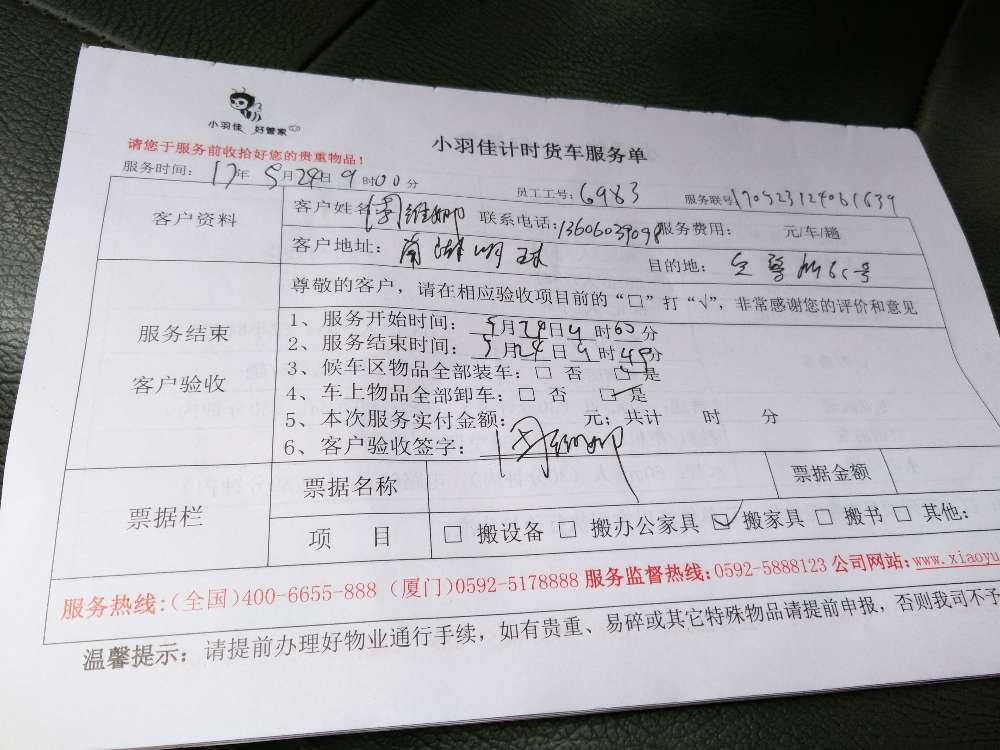 小羽佳 好管家
小羽佳计时货车服务单
请您于服务前收拾好您的贵重物品!
服务时间: 17年 5月24日9时00分 员工工号: 6983 服务联号
客户资料
客户姓名: 联系电话: 13606039098 服务费用: 元/车/趟
客户地址: 南湖明珠 目的地: 号
服务结束
客户验收
尊敬的客户, 请在相应验收项目前的“□”打“√”, 非常感谢您的评价和意见
1、服务开始时间: 5月24日 时 分
2、服务结束时间: 5月24日 时 分
3、候车区物品全部装车: □ 否 □ 是
4、车上物品全部卸车: □ 否 □ 是
5、本次服务实付金额: 元; 共计 时 分
6、客户验收签字:
票据栏
票据名称 票据金额
项 目 □ 搬设备 □ 搬办公家具 ☑ 搬家具 □ 搬书 □ 其他:
服务热线: (全国)400-6655-888 (厦门)0592-5178888 服务监督热线: 0592-5888123 公司网站: www.xiaoyu
温馨提示: 请提前办理好物业通行手续, 如有贵重、易碎或其它特殊物品请提前申报, 否则我司不予